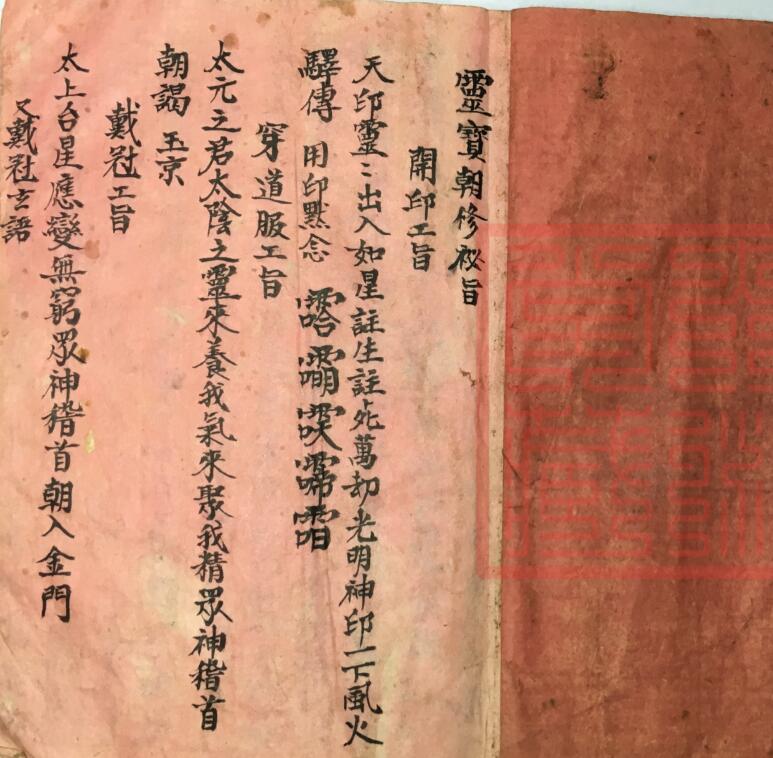 靈寶朝修秘旨
開印工旨
天印靈〻出入如星註生註死萬劫光明神印一下風火
驛傳 用印默念
穿道服工旨
太元之君太陰之靈來養我氣來聚我精眾神稽首
朝謁 玉京
戴冠工旨
太上台星應變無窮眾神稽首朝入金門
又戴冠玄語